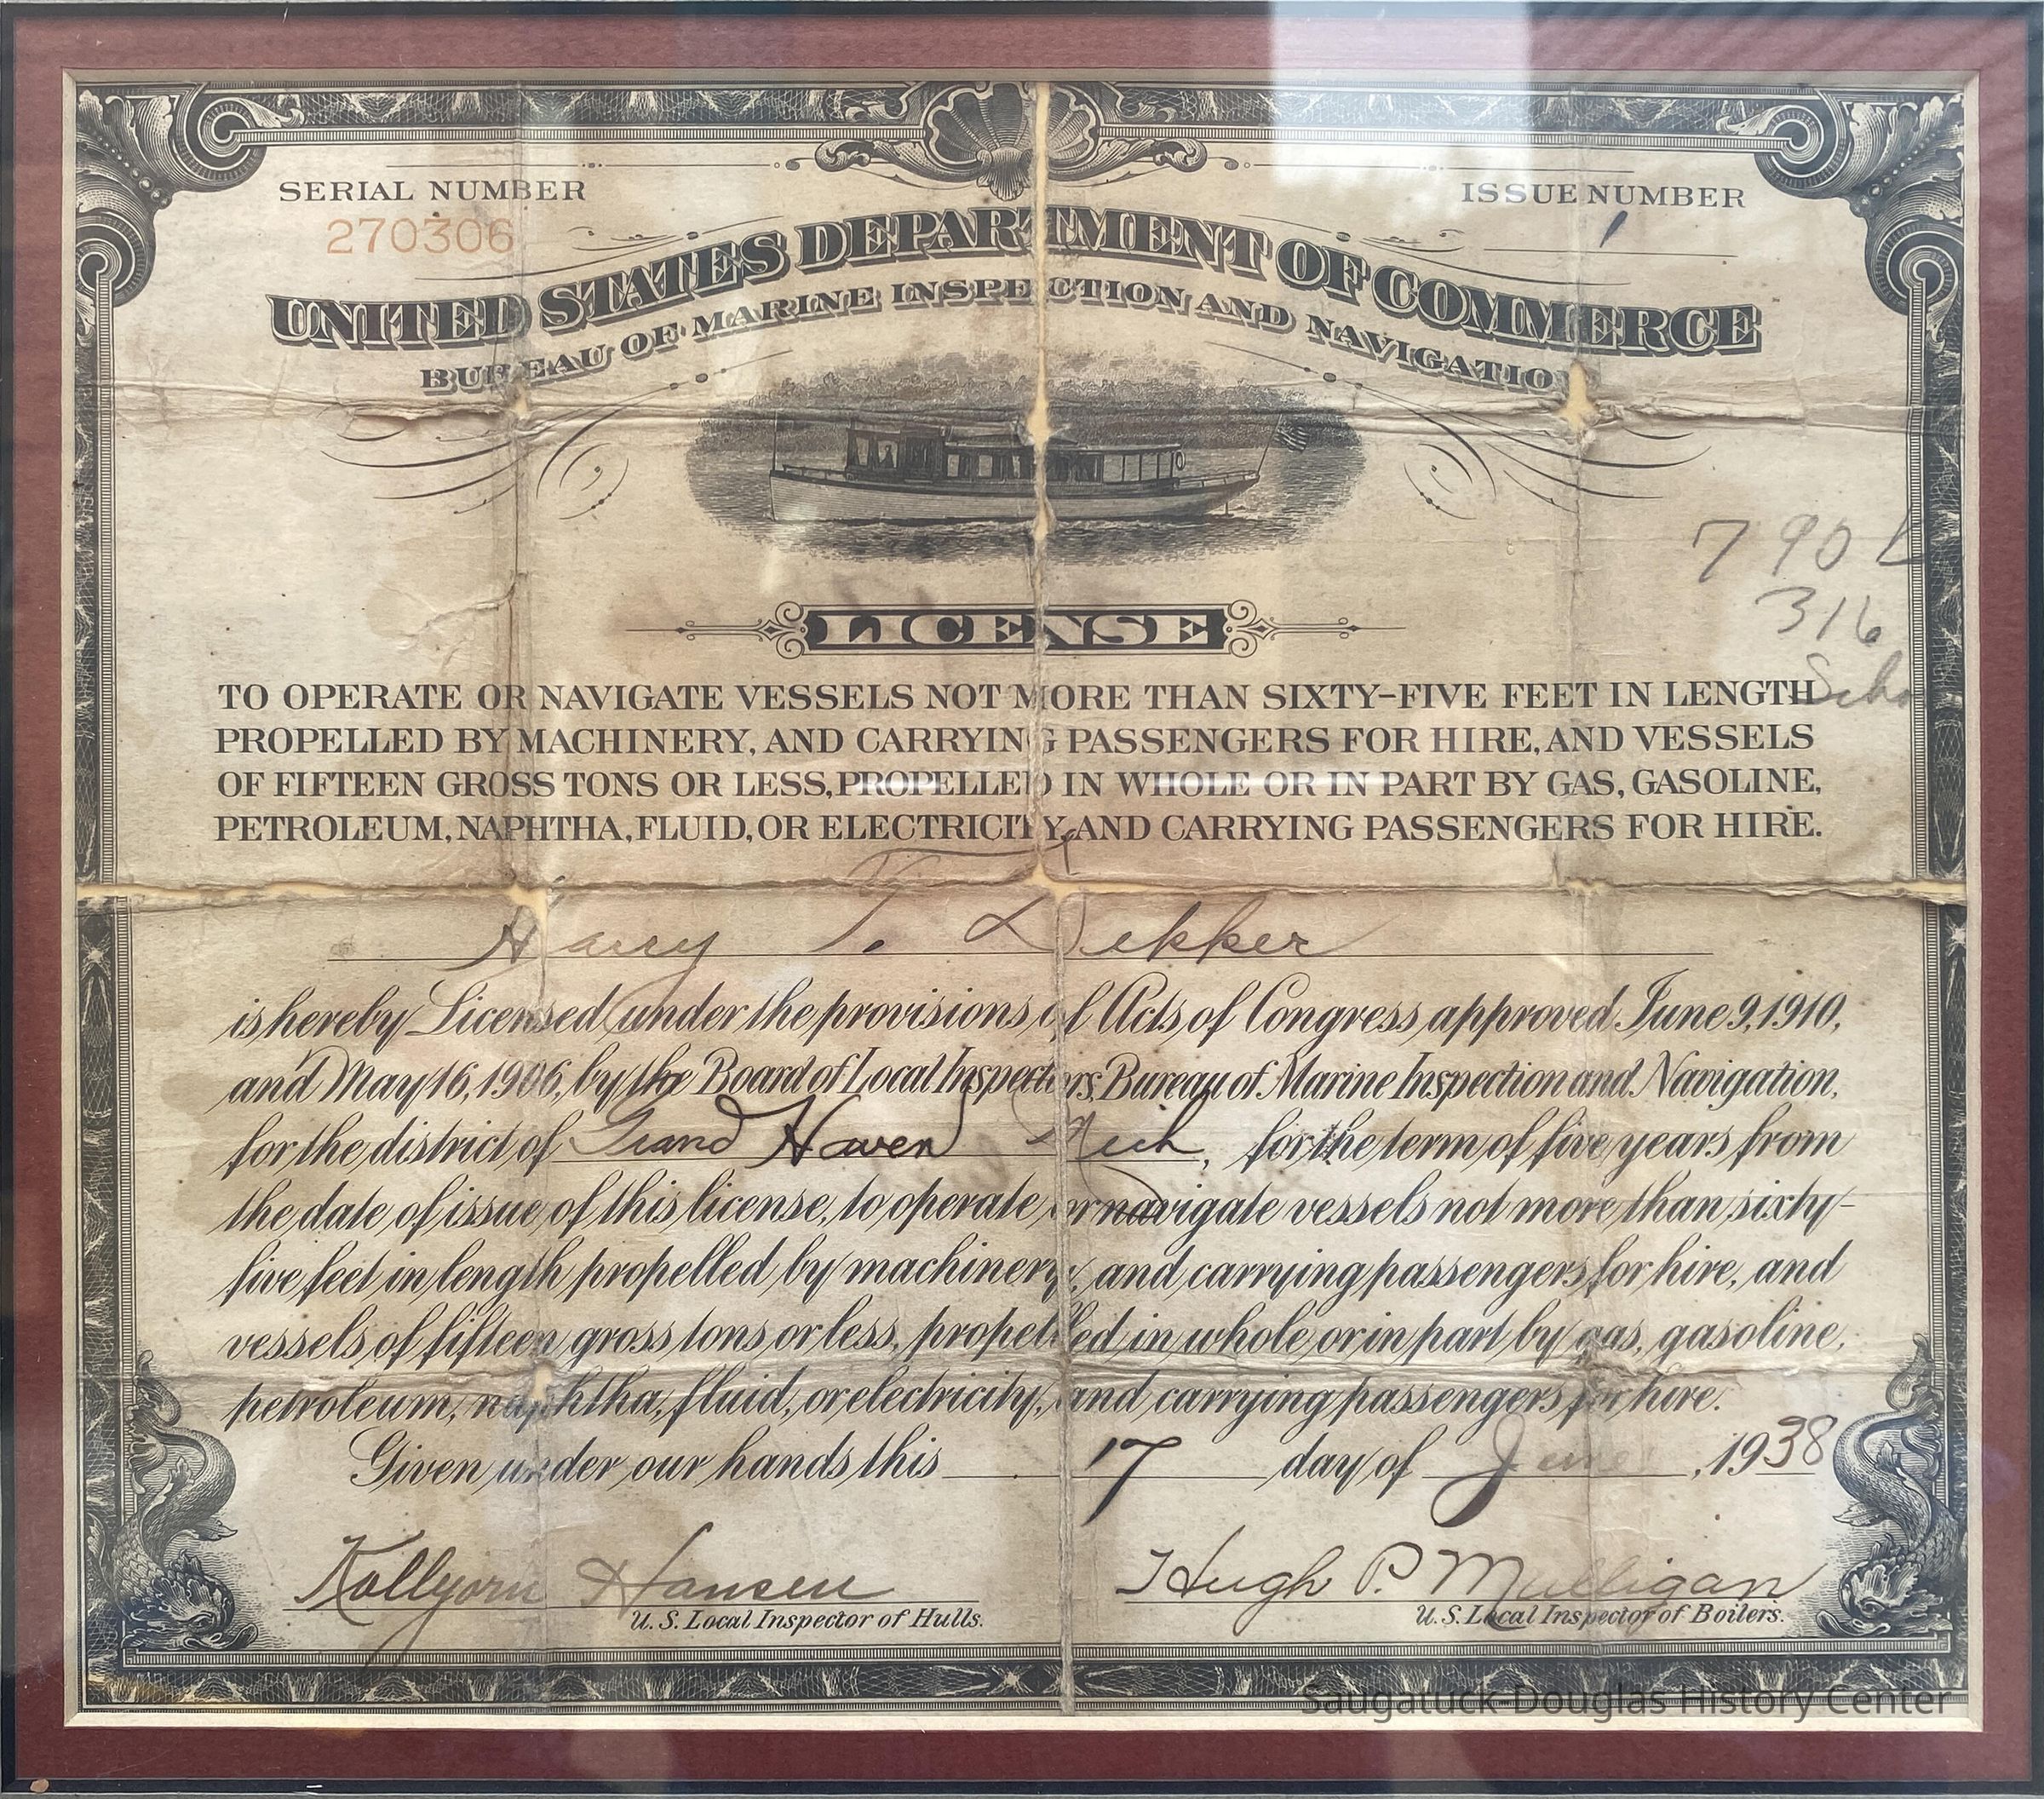 SERIAL NUMBER
270306
ISSUE NUMBER
1
UNITED STATES DEPARTMENT OF COMMERCE
BUREAU OF MARINE INSPECTION AND NAVIGATIO
790
316
LICENSE
TO OPERATE OR NAVIGATE VESSELS NOT MORE THAN SIXTY-FIVE FEET IN LENGTH
PROPELLED BY MACHINERY, AND CARRYING PASSENGERS FOR HIRE, AND VESSELS
OF FIFTEEN GROSS TONS OR LESS, PROPELLED IN WHOLE OR IN PART BY GAS, GASOLINE,
PETROLEUM, NAPHTHA, FLUID, OR ELECTRICITY, AND CARRYING PASSENGERS FOR HIRE.
Harry T. Dekker
is hereby Licensed under the provisions of Acts of Congress approved June 9, 1910,
and May 16, 1906, by the Board of Local Inspectors, Bureau of Marine Inspection and Navigation,
for the district of Grand Haven Mich, for the term of five years from
the date of issue of this license, to operate or navigate vessels not more than sixty-
five feet in length propelled by machinery, and carrying passengers for hire, and
vessels of fifteen gross tons or less, propelled in whole or in part by gas, gasoline,
petroleum, naphtha, fluid, or electricity, and carrying passengers for hire.
Given under our hands this 17 day of June, 1938
Hansen
U.S. Local Inspector of Hulls.
Hugh P. Mulligan
U.S. Local Inspector of Boilers.
Saugatuck-Douglas History Center